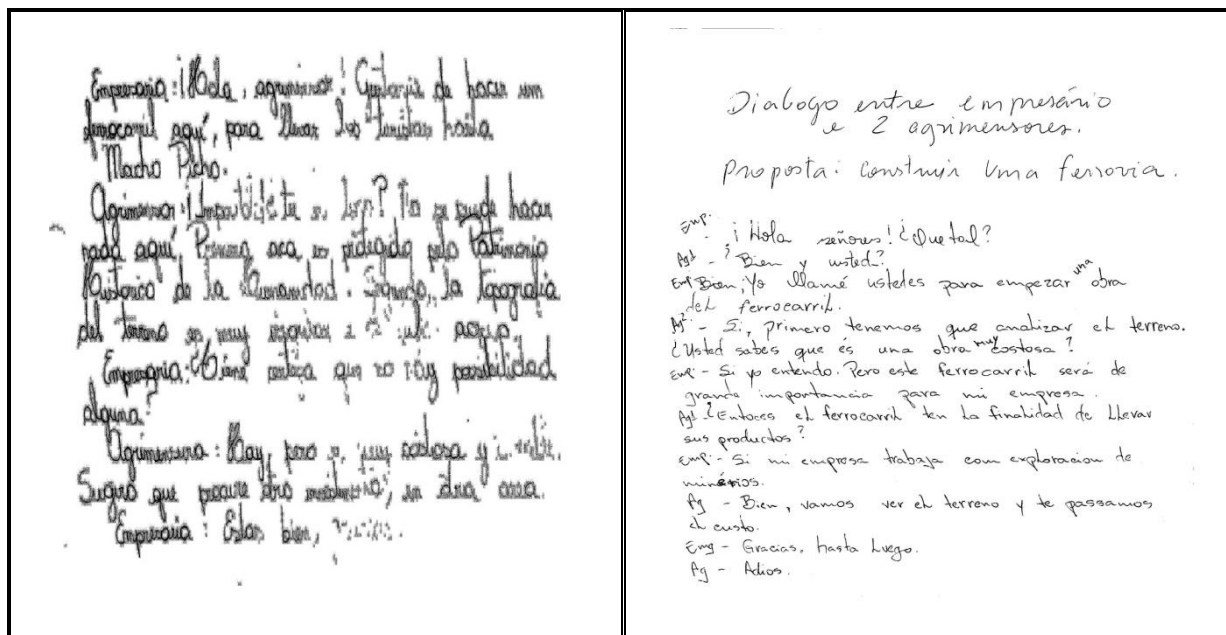 Empresaria: ¡Hola, agrimensor! Gustaria de hacer um
ferrocarril aquí, para llevar los turistas hasta
Macho Picho.
Agrimensor: ¡ No se puede hacer
nada aquí. Primero aca es pelo Patrimonio
Historico de la Humanidad. Segundo, la topografia
del terreno es muy
Empresaria: que no posibilidad
alguna?
Agrimensura: Hay, pero muy costosa y
Sugiro que procure otro en otra area.
Empresaria: Estas bien,
Dialogo entre empresário
e 2 agrimensores.
Proposta: Construir uma ferrovia.
Emp. - ¡Hola señores! ¿Que tal?
Ag1 - ¿Bien y usted?
Emp Bien, Yo llamé ustedes para empezar una obra
del ferrocarril.
Ag2 - Si, primero tenemos que analizar el terreno.
¿Usted sabes que és una obra muy costosa?
Emp - Si yo entendo. Pero este ferrocarril será de
grande importancia para mi empresa.
Ag1 - ¿Entoces el ferrocarril ten la finalidad de llevar
sus productos?
Emp - Si mi empresa trabaja com exploracion de
minérios.
Ag - Bien, vamos ver el terreno y te passamos
el custo.
Emp - Gracias, hasta luego.
Ag - Adios.